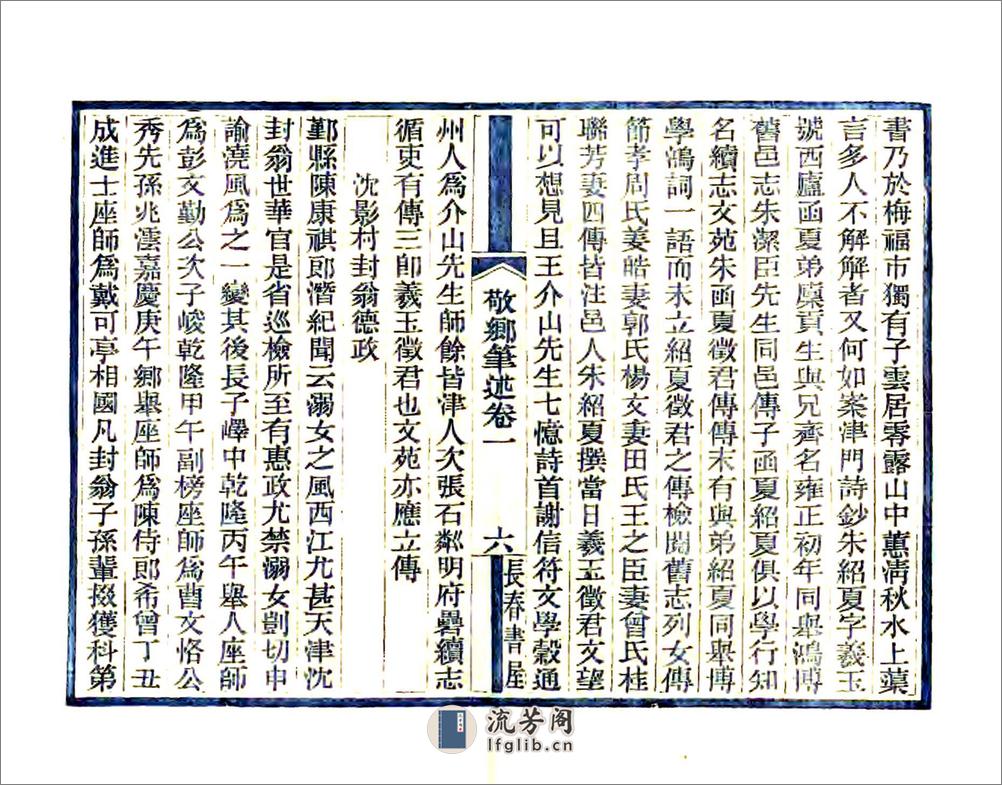 書乃於梅福市獨有子雲居零露山中蕙淸秋水上蕖
言多人不解解者又何如案津門詩鈔朱紹夏字義玉
號西廬函夏弟廩貢生與兄齊名雍正初年同舉鴻博
舊邑志朱潔臣先生同邑傳子函夏紹夏俱以學行知
名續志文苑朱函夏徵君傳傳末有與弟紹夏同舉博
學鴻詞一語而未立紹夏徵君之傳檢閱舊志列女傳
節孝周氏姜皓妻郭氏楊文妻田氏王之臣妻曾氏桂
聯芳妻四傳皆注邑人朱紹夏撰當日義玉徵君文望
可以想見且王介山先生七憶詩首謝信符文學穀通
敬鄉筆述卷一
六
長春書屋
州人爲介山先生師餘皆津人次張石鄰明府疊續志
循吏有傳三卽義玉徵君也文苑亦應立傳
沈影村封翁德政
鄞縣陳康祺郎潛紀聞云溺女之風西江尤甚天津沈
封翁世華官是省巡檢所至有惠政尤禁溺女剴切申
諭澆風爲之一變其後長子嶧中乾隆丙午舉人座師
爲彭文勤公次子峻乾隆甲午副榜座師爲曹文恪公
秀先孫兆澐嘉慶庚午鄉舉座師爲陳侍郎希曾丁丑
成進士座師爲戴可亭相國凡封翁子孫輩掇獲科第
流芳阁
lfglib.cn